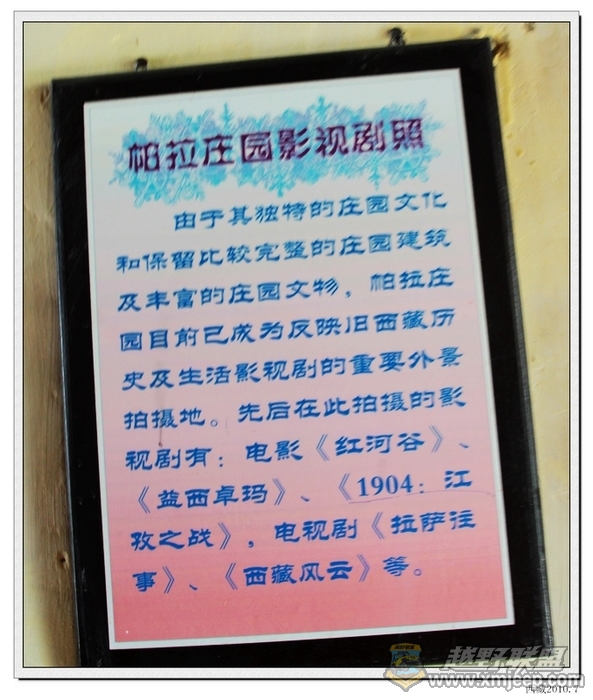 帕拉庄园影视剧照
由于其独特的庄园文化
和保留比较完整的庄园建筑
及丰富的庄园文物，帕拉庄
园目前已成为反映旧西藏历
史及生活影视剧的重要外景
拍摄地。先后在此拍摄的影
视剧有：电影《红河谷》、
《益西卓玛》、《1904：江
孜之战》，电视剧《拉萨往
事》、《西藏风云》等。
越野联盟
www.xmjeep.com
西藏2010.7